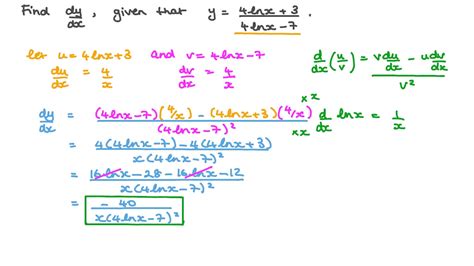 Find dy/dx, given that y = (4lnx + 3)/(4lnx - 7).
let u = 4lnx + 3 and v = 4lnx - 7 d/dx (u/v) = (v du/dx - u dv/dx)/v²
du/dx = 4/x dv/dx = 4/x
dy/dx = ((4lnx - 7)(4/x) - (4lnx + 3)(4/x))/(4lnx - 7)² ×x ×x d/dx lnx = 1/x
= (4(4lnx - 7) - 4(4lnx + 3))/(x(4lnx - 7)²)
= (16lnx - 28 - 16lnx - 12)/(x(4lnx - 7)²)
= - 40/(x(4lnx - 7)²)